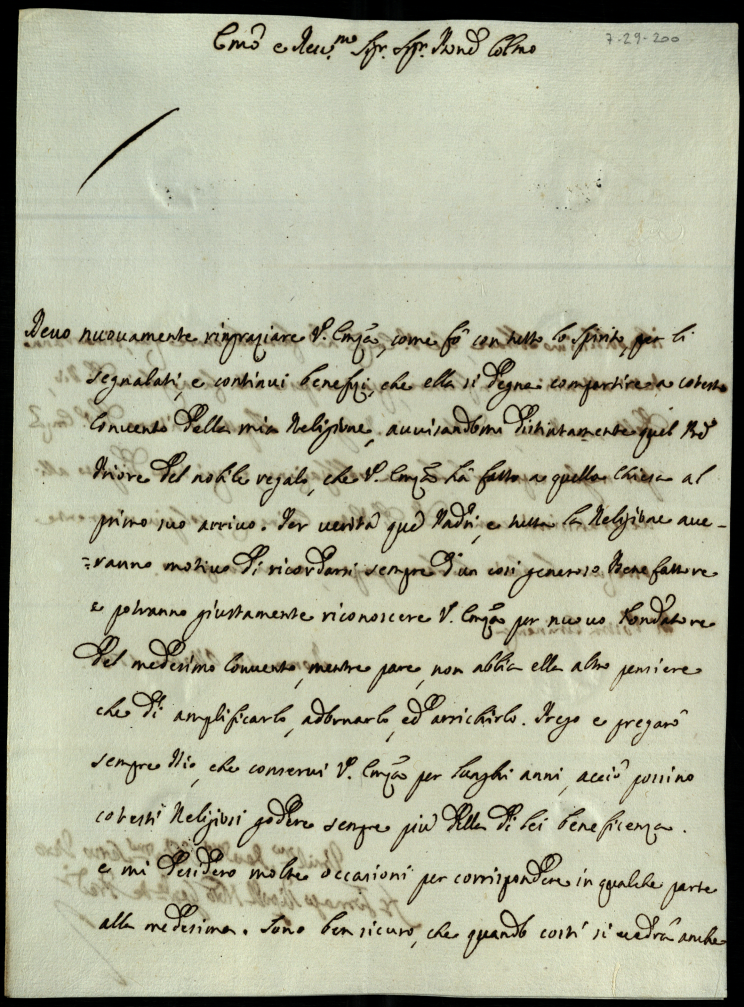 Em̃o e Rev.mo Sig.r Sig.r Pron̄e Colmo
7-29-200
Devo nuovamente ringraziare V. Emza, come fò con tutto lo spirito, per li
segnalati, e continui benefizi, che ella si degna compartire a cotesto
Convento della mia Religione, avvisandomi distintamente quel Pre
Priore del nobile regalo, che V. Emza hà fatto a quella Chiesa al
primo suo arrivo. Per verità què Padri, e tutta la Religione ave-
=ranno motivo di ricordarsi sempre d'un così generoso Benefattore
e potranno giustamente riconoscere V. Emza per nuovo Fondatore
del medesimo Convento, mentre pare, non abbia ella altro pensiere
che di amplificarlo, adornarlo, ed arrichirlo. Prego e pregarò
sempre Dio, che conservi V. Emza per lunghi anni, acciò possino
cotesti Religiosi godere sempre più della di lei beneficenza.
e mi desidero molte occasioni per corrispondere in qualche parte
alla medesima. Sono ben sicuro, che quando costì si vedrà anche